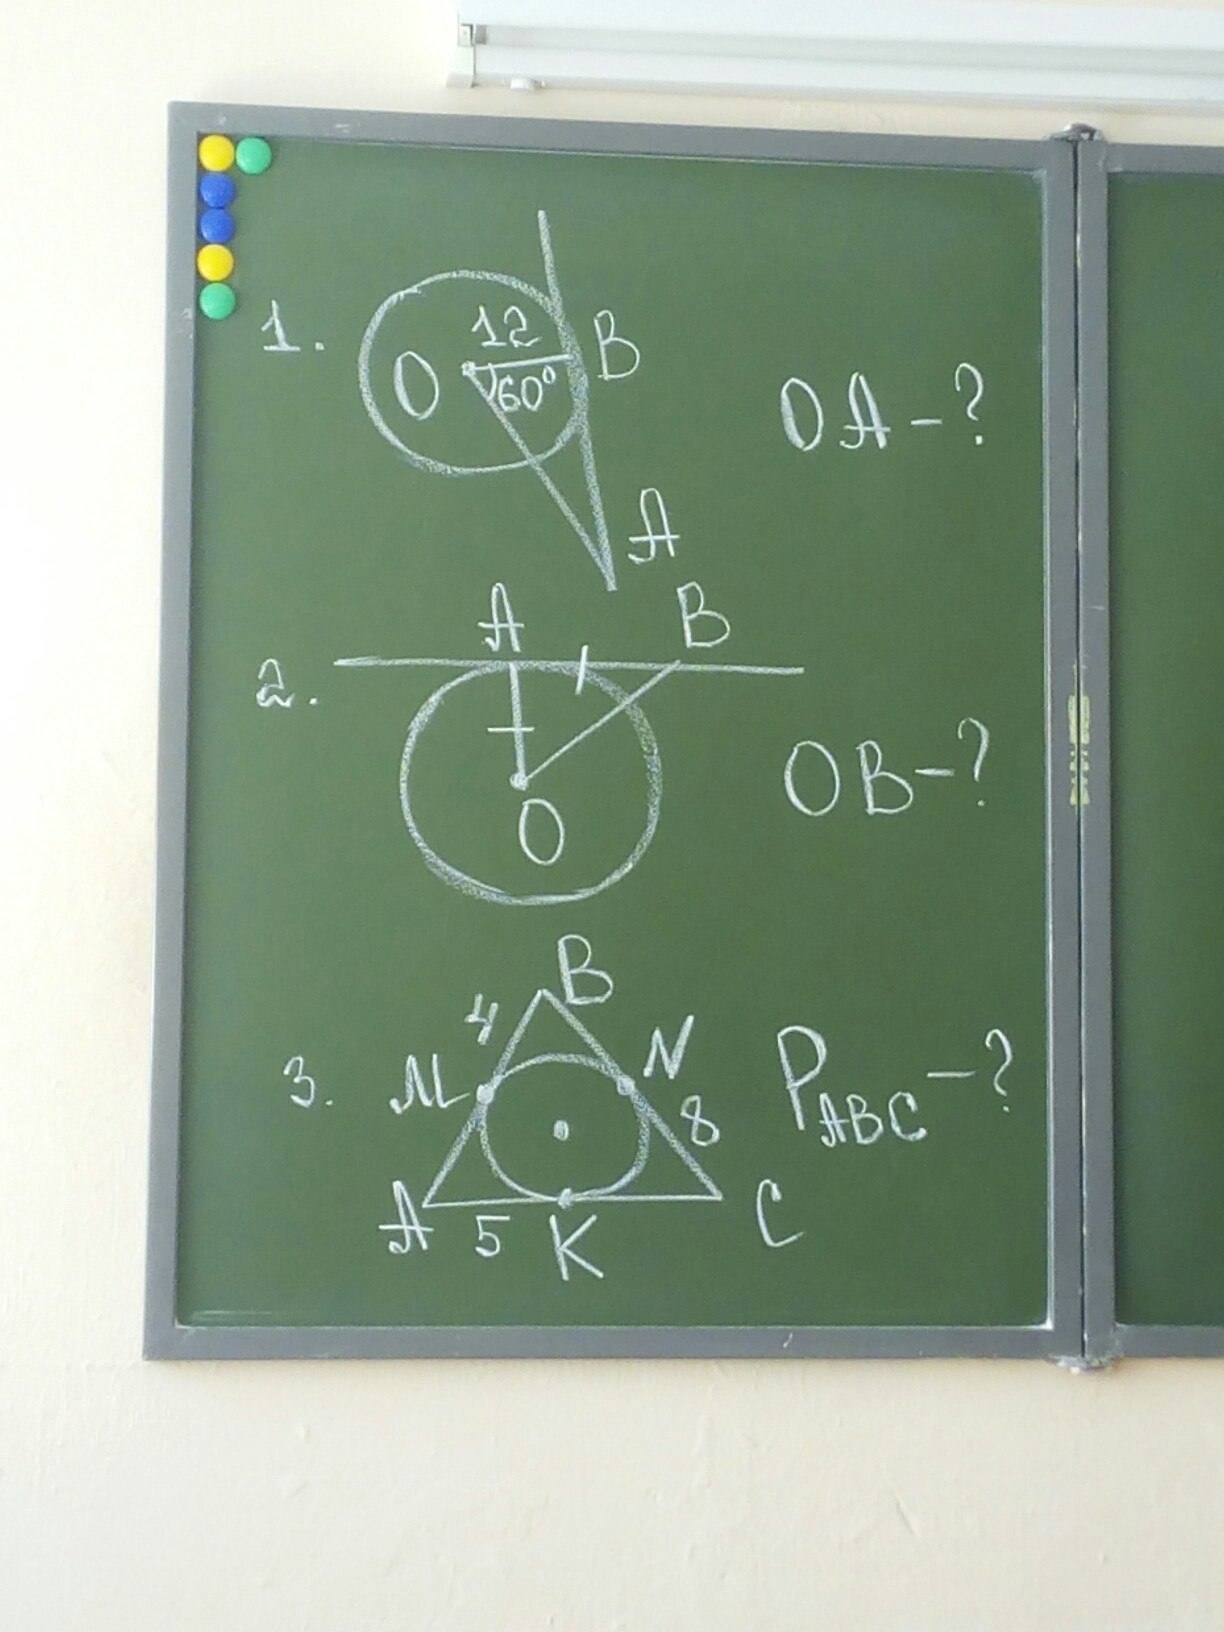 1.
12
O
60°
B
A
OA-?
2.
A
B
O
OB-?
3.
B
4
M
N
8
A
5
K
C
P_ABC-?